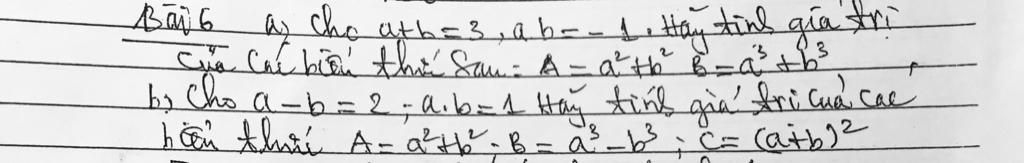 Bài 6 a) Cho a+b=3, ab=-1. Hãy tính giá trị
của các biểu thức sau: A = a²+b² B = a³+b³
b) Cho a-b=2; a.b=1 Hãy tính giá trị của các
biểu thức A = a²+b². B = a³-b³; C = (a+b)²